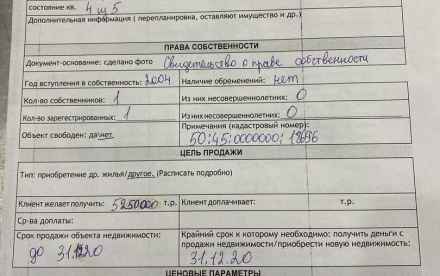 состояние кв. 4 из 5
Дополнительная информация ( перепланировка, оставляют имущество и др.)
ПРАВА СОБСТВЕННОСТИ
Документ-основание: сделано фото Свидетельство о праве собственности
Год вступления в собственность: 2004 Наличие обременений: нет
Кол-во собственников: 1 Из них несовершеннолетних: 0
Кол-во зарегестрированных: 1 Из них несовершеннолетних: 0
Объект свободен: да/нет. Примечания (кадастровый номер):
50:45:0000000:
ЦЕЛЬ ПРОДАЖИ
Тип: приобретение др. жилья/другое. (Расписать подробно)
Клиент желает получить: 5250000 т.р. Клиент доплачивает: т.р.
Ср-ва доплаты:
Срок продажи объекта недвижимости: Крайний срок к которому необходимо: получить деньги с
продажи недвижимости/приобрести новую недвижимость:
до 31.12.20 31.12.20
ЦЕНОВЫЕ ПАРАМЕТРЫ